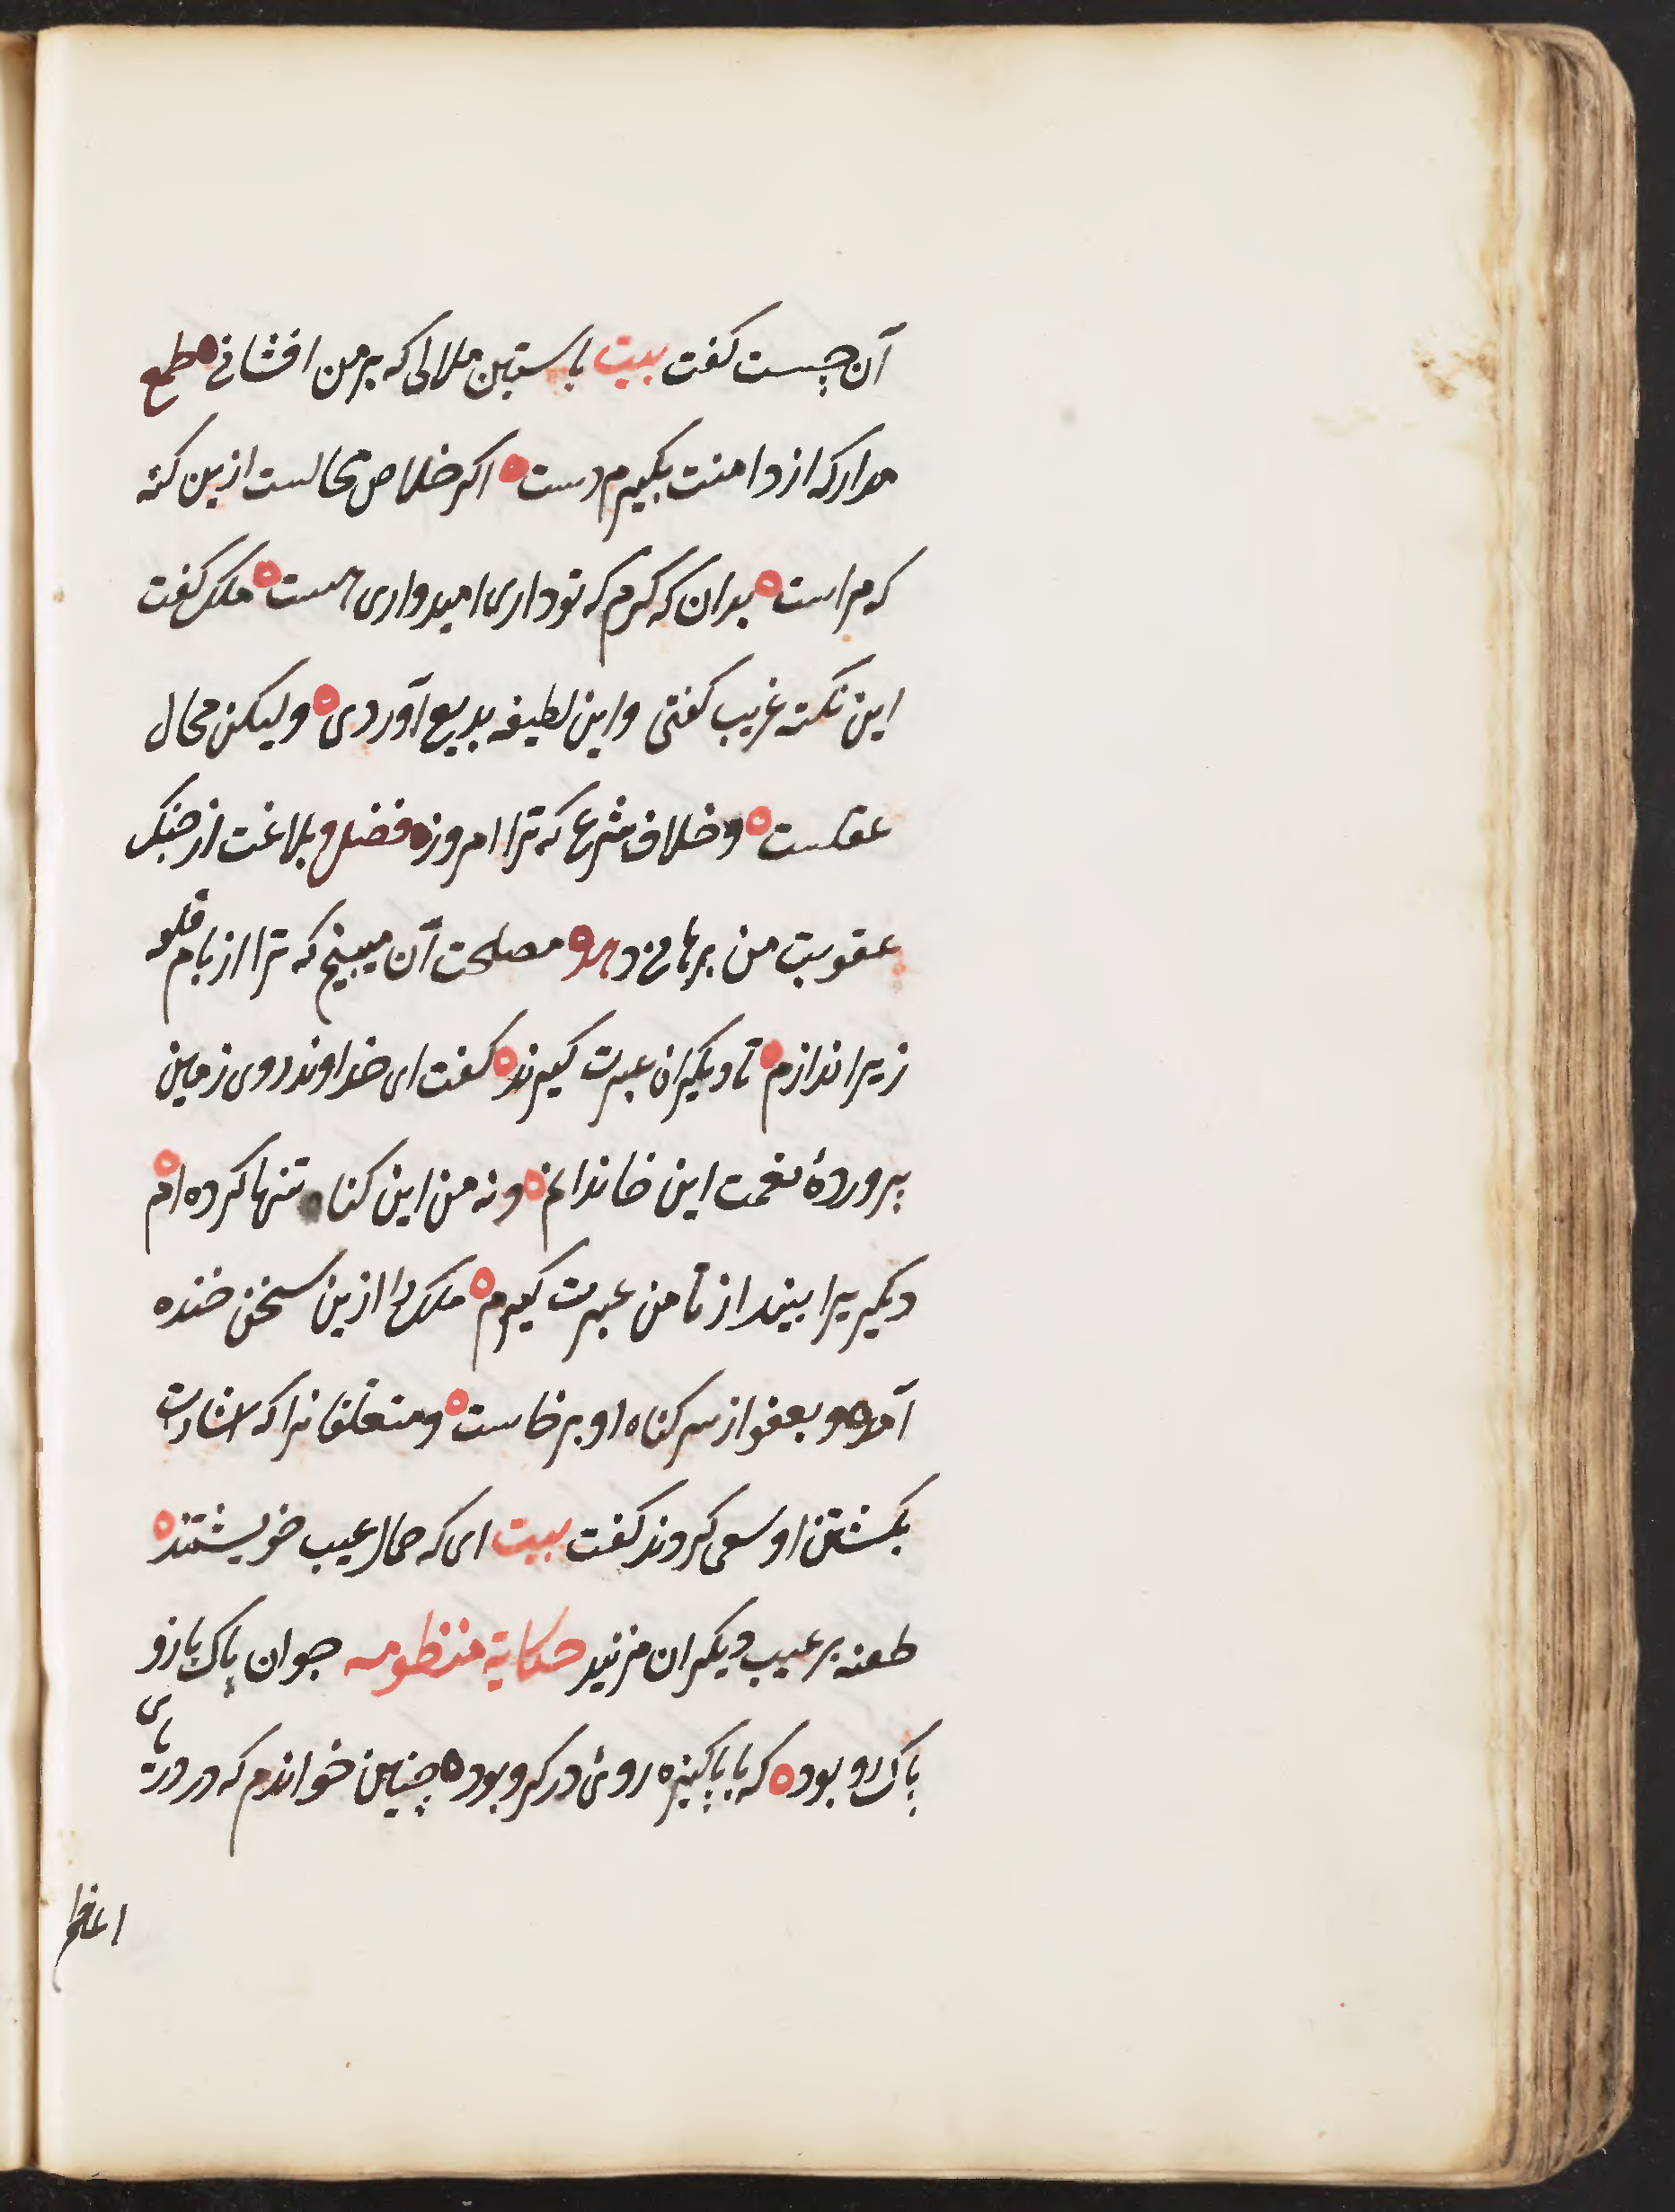 آن چیست کفت بیت باستین ملالی که بر من افشانی طمع
مدار که از دامنت بکیرم دست اکر خلاص محالست ازین کنه
که مراست بدان که کرم که تو داری امیدواری هست ملک کفت
این نکته غریب کفتی و این لطیفه بدیع آوردی ولیکن محال
عقلست و خلاف شرع که ترا امروز فضل و بلاغت از چنک
عقوبت من برهاند مصلحت آن میبینم که ترا از بام قلعه
زیر اندازم تا دیکران عبرت کیرند کفت ای خداوند روی زمین
پروردهٔ نعمت این خاندانم و نه من این کناه تنها کرده ام
دیکریرا بینداز تا من عبرت کیرم ملک را ازین سخن خنده
آمد و بعفو از سر کناه او برخاست و متعلقانرا که اشارت
بکشتن او سعی کردند کفت بیت ای که حمال عیب خویشتند
طعنه بر عیب دیکران مزنید حکایة منظومه جوان پاک باز و
پاک رو بود که با پاکیزه روئ در کرو بود چنین خواندم که در دریای
اعظم